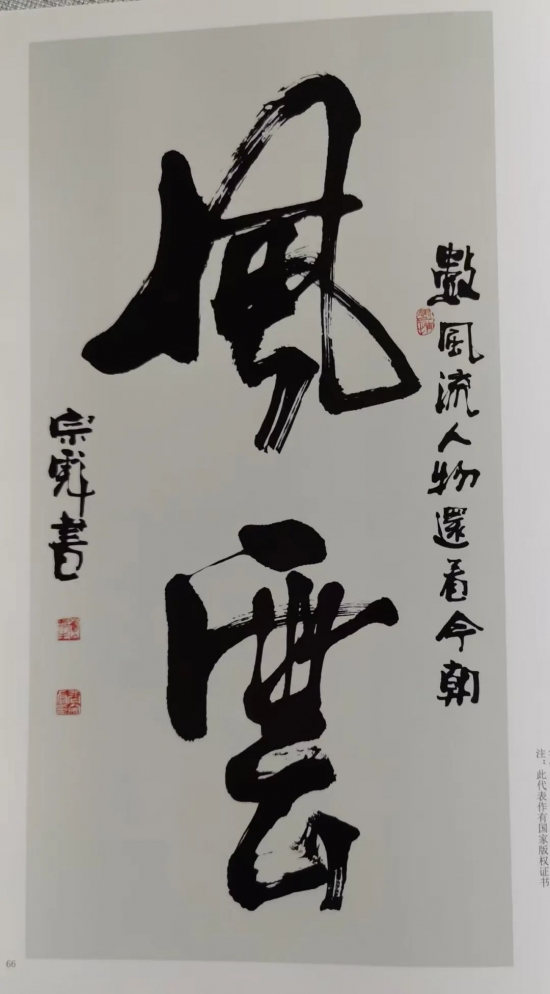 數風流人物還看今朝
風雲
宗輝書
注：此代表作有国家版权证书
66